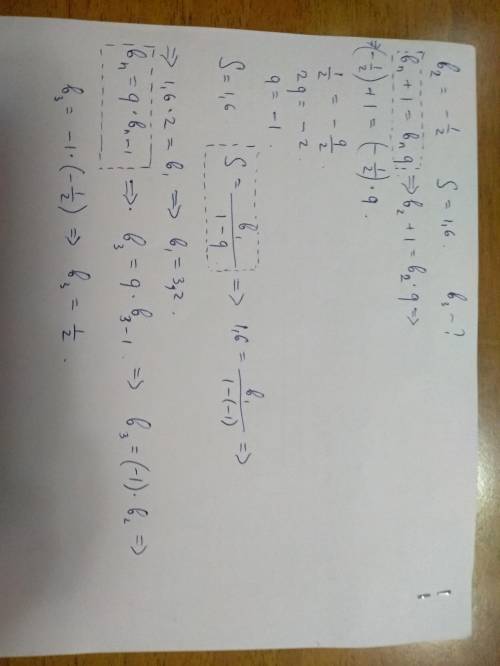 b₂ = -1/2   S = 1,6.   b₃ - ?
bₙ + 1 = bₙ q. ⇒ b₂ + 1 = b₂ · q ⇒
⇒ (-1/2) + 1 = (-1/2) · q.
1/2 = - q/2
2q = -2.
q = -1.
S = 1,6   S = b₁/(1-q) ⇒ 1,6 = b₁/(1-(-1)) ⇒
⇒ 1,6 · 2 = b₁ ⇒ b₁ = 3,2.
bₙ = q · bₙ₋₁ ⇒ b₃ = q · b₃₋₁. ⇒ b₃ = (-1) · b₂ ⇒
b₃ = -1 · (-1/2) ⇒ b₃ = 1/2.